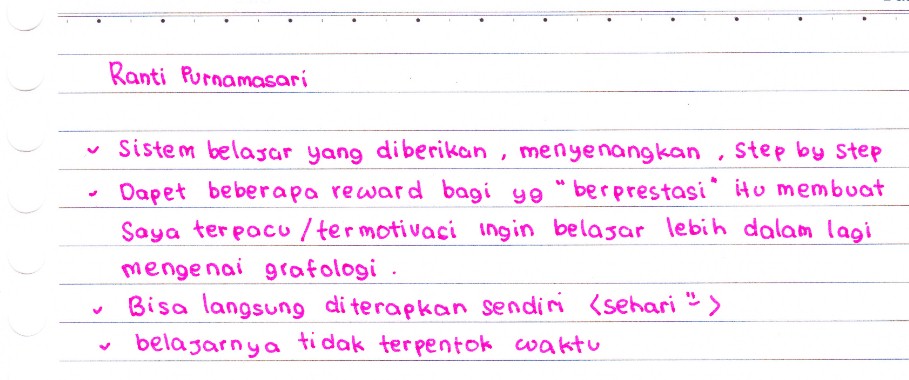 Ranti Purnamasari
✓ Sistem belajar yang diberikan , menyenangkan , Step by Step
✓ Dapet beberapa reward bagi yg "berprestasi" itu membuat
Saya terpacu/termotivaci ingin belajar lebih dalam lagi
mengenai grafologi .
✓ Bisa langsung diterapkan sendiri <sehari "->
✓ belajarnya tidak terpentok waktu